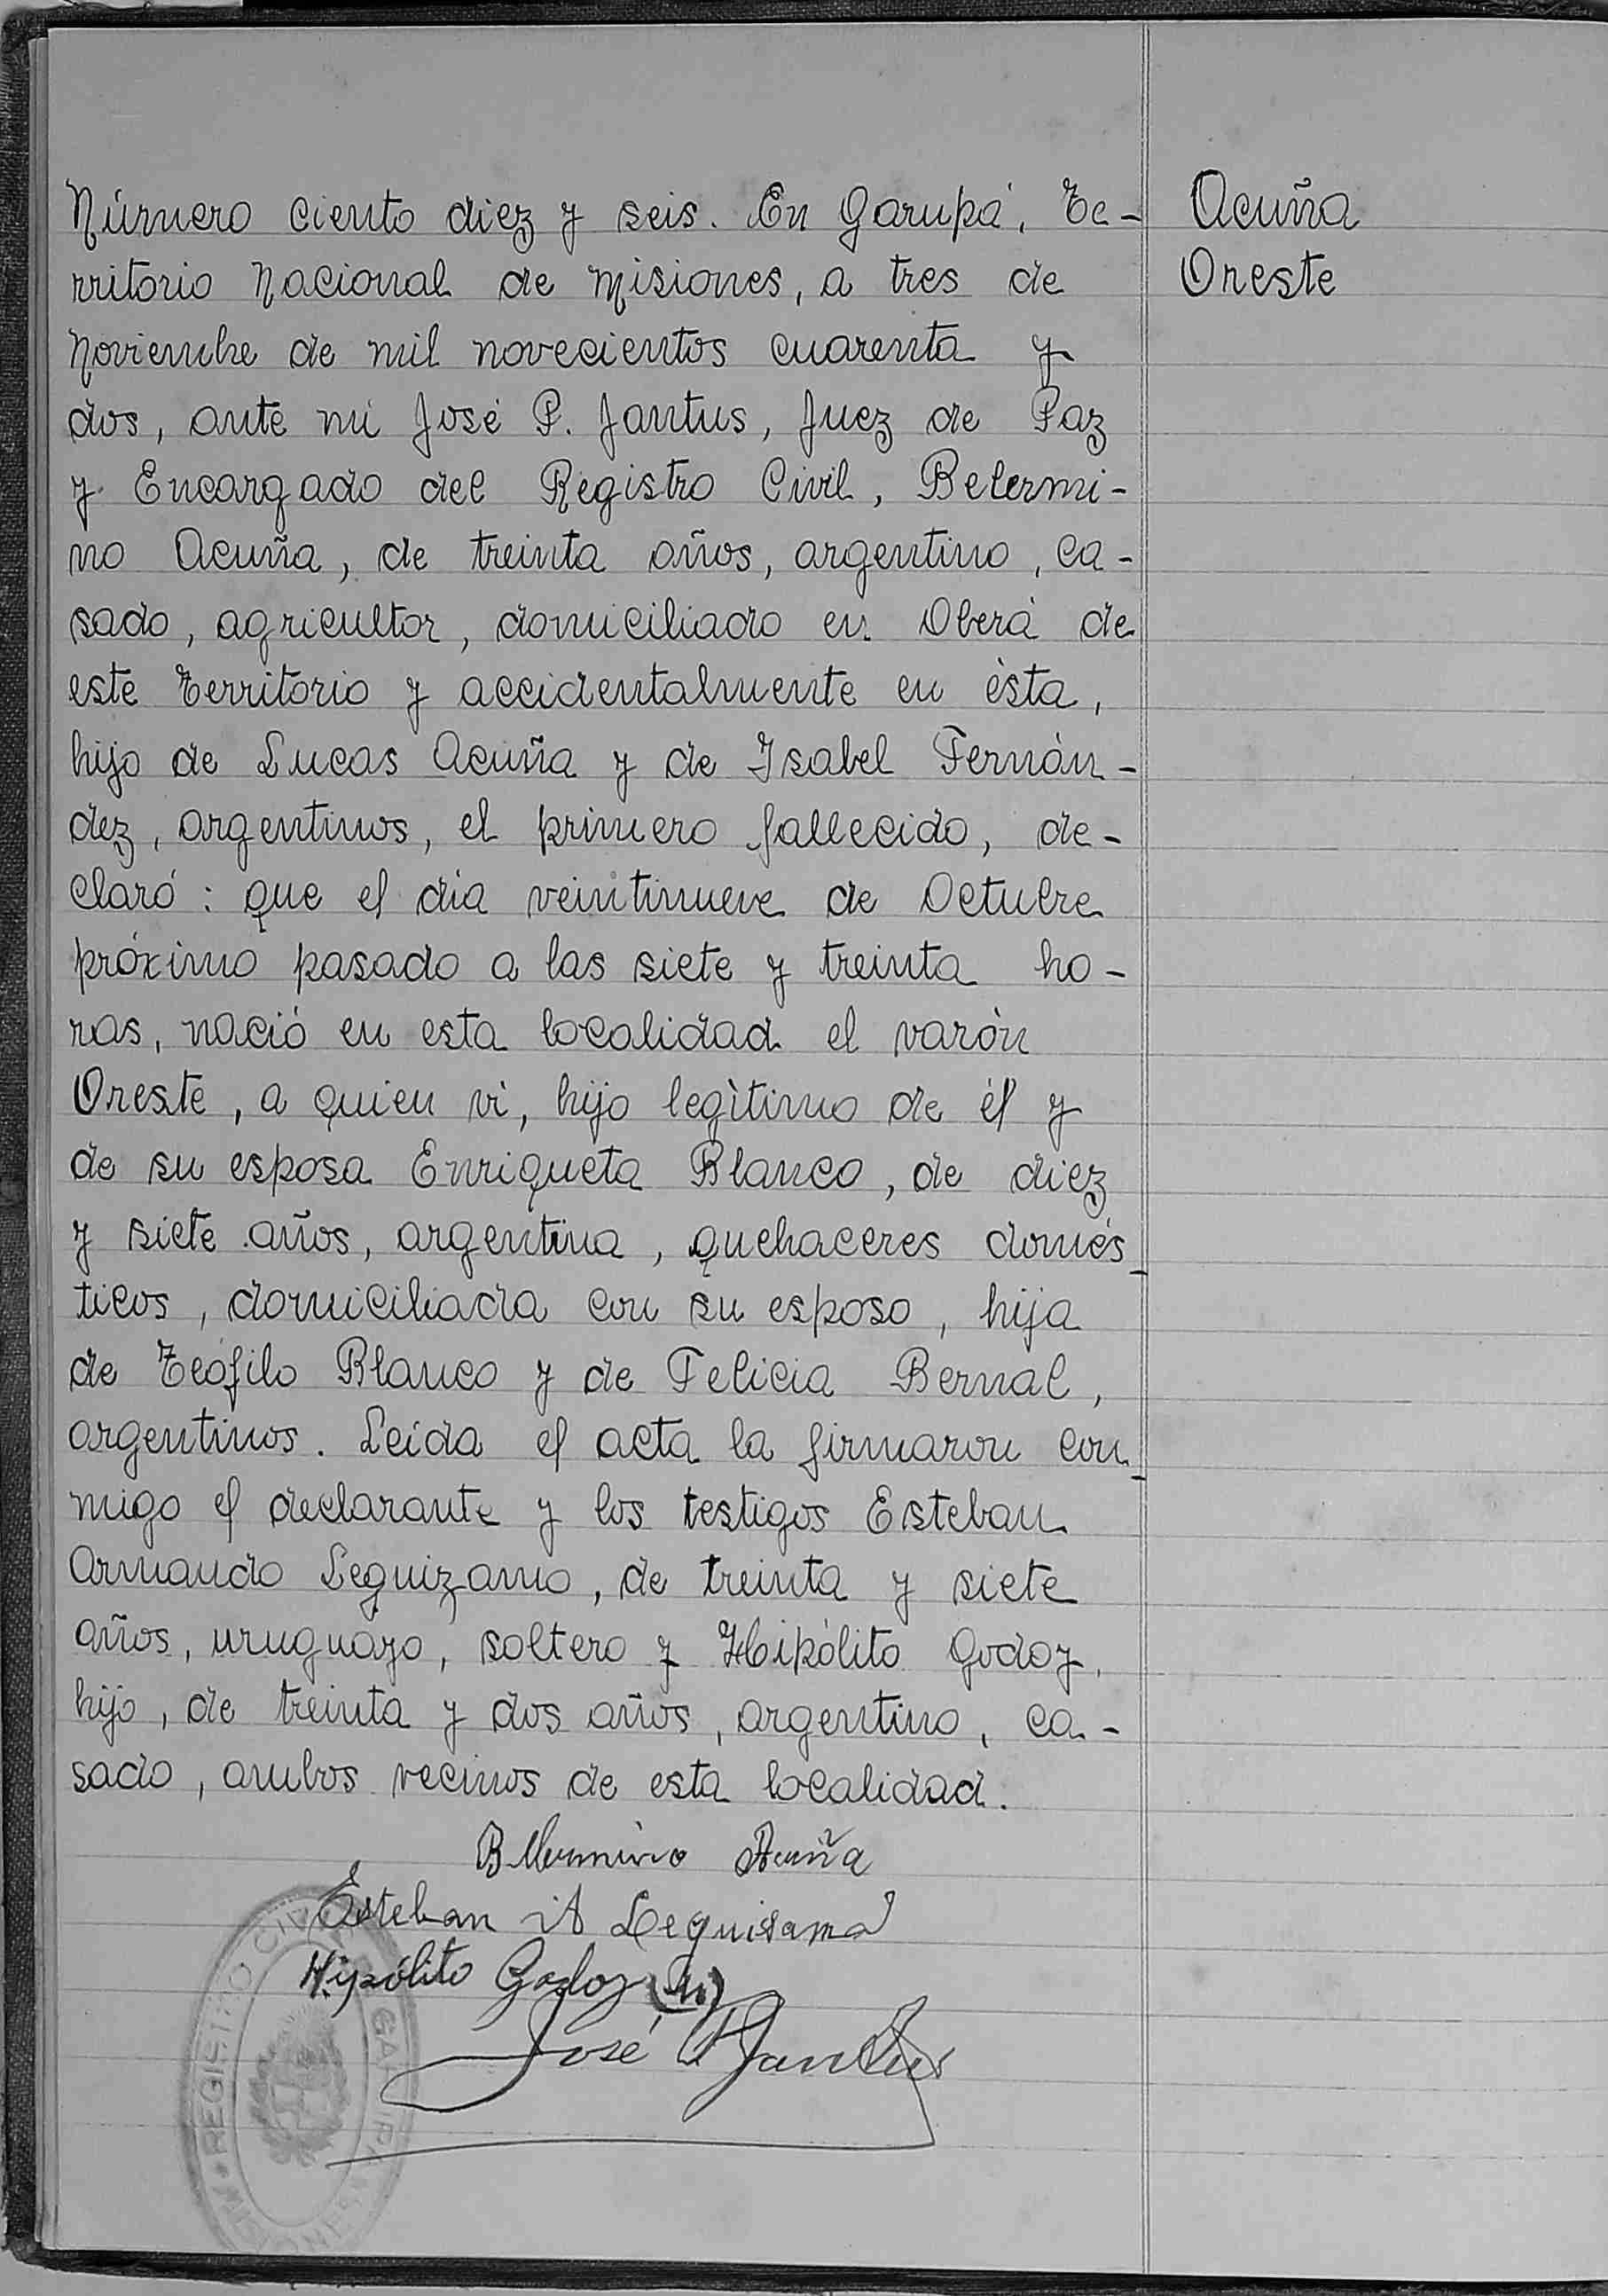 Número ciento diez y seis. En Garupá, Te-
rritorio Nacional de Misiones, a tres de
Noviembre de mil novecientos cuarenta y
dos, ante mi José P. Jantus, Juez de Paz
y Encargado del Registro Civil, Belermi-
no Acuña, de treinta años, argentino, ca-
sado, agricultor, domiciliado en Oberá de
este Territorio y accidentalmente en ésta,
hijo de Lucas Acuña y de Isabel Fernán-
dez, argentinos, el primero fallecido, de-
claró: que el día veintinueve de Octubre
próximo pasado a las siete y treinta ho-
ras, nació en esta localidad el varón
Oreste, a quien vi, hijo legítimo de él y
de su esposa Enriqueta Blanco, de diez
y siete años, argentina, quehaceres domés-
ticos, domiciliada con su esposo, hija
de Teófilo Blanco y de Felicia Bernal,
argentinos. Leída el acta la firmaron con-
migo el declarante y los testigos Esteban
Armando Leguizamo, de treinta y siete
años, uruguayo, soltero y Hipólito Godoy,
hijo, de treinta y dos años, argentino, ca-
sado, ambos vecinos de esta localidad.
Acuña
Oreste
Acuña
Esteban A Leguisamo
Hipólito Godoy (h)
José P Jantus
REGISTRO CIVIL
GARUPA
MISIONES